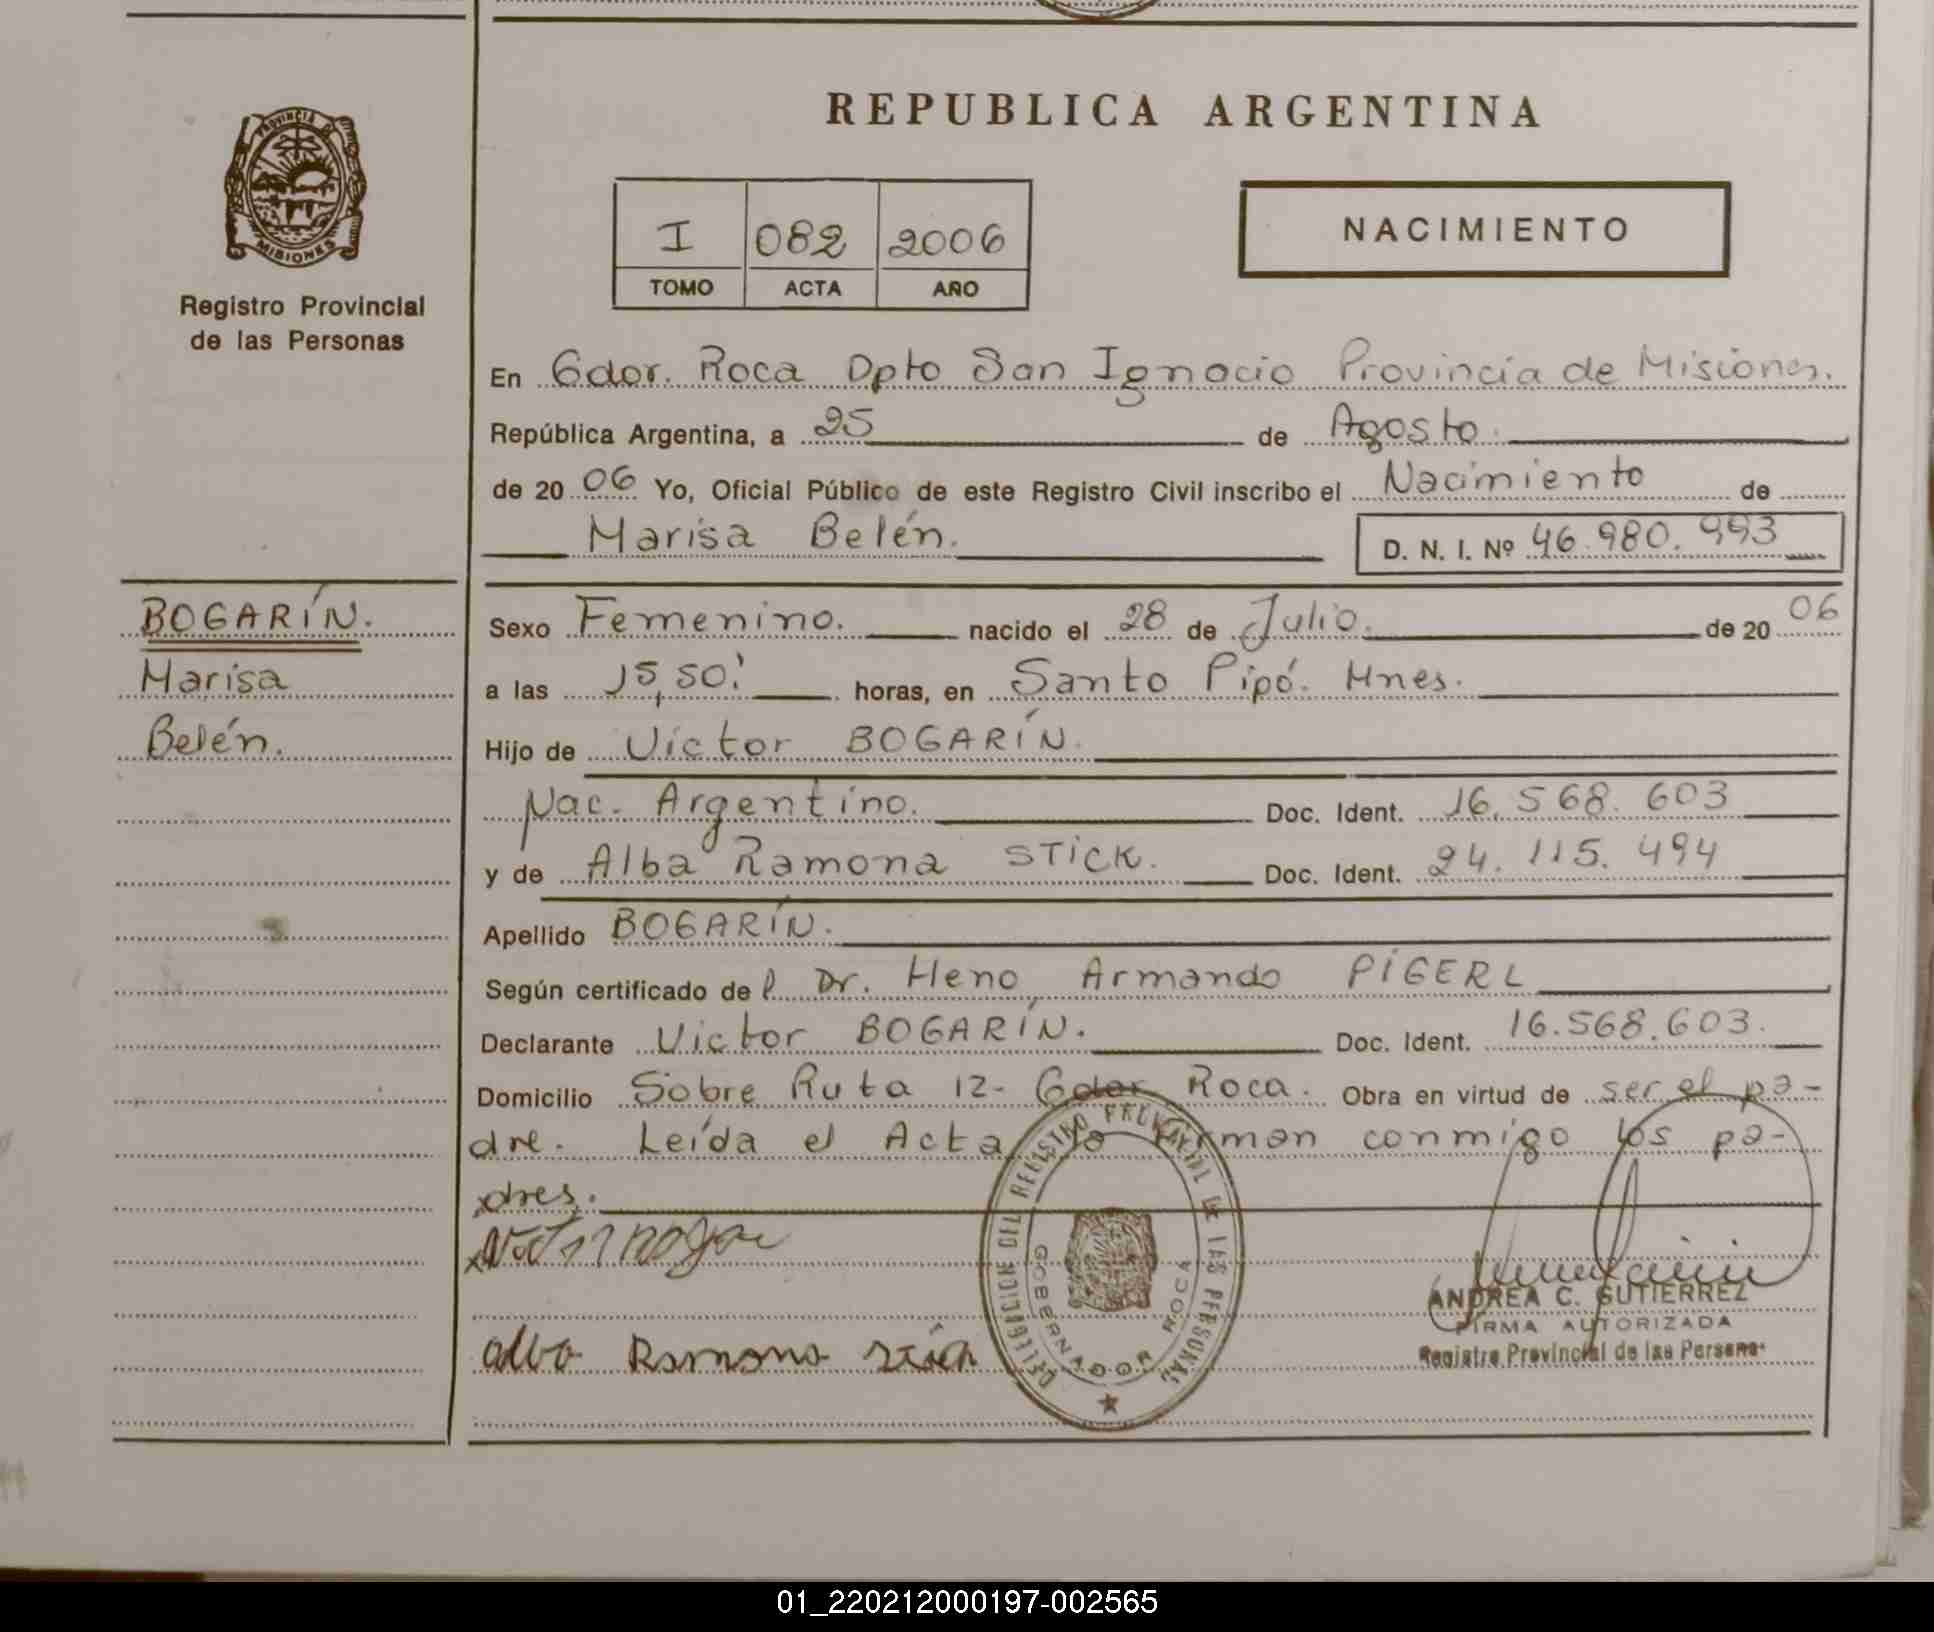 REPUBLICA ARGENTINA
PROVINCIA DE MISIONES
Registro Provincial
de las Personas
I 082 2006
TOMO ACTA AÑO
NACIMIENTO
En Gdor. Roca Dpto San Ignacio Provincia de Misiones.
República Argentina, a 25 de Agosto.
de 2006 Yo, Oficial Público de este Registro Civil inscribo el Nacimiento de
Marisa Belén. D. N. I. Nº 46.980.993
BOGARÍN.
Marisa
Belén.
Sexo Femenino. nacido el 28 de Julio. de 2006
a las 15,50' horas, en Santo Pipó. Mnes.
Hijo de Victor BOGARÍN.
Nac. Argentino. Doc. Ident. 16.568.603
y de Alba Ramona STICK. Doc. Ident. 24.115.494
Apellido BOGARÍN.
Según certificado del Dr. Heno Armando PIGERL
Declarante Victor BOGARÍN. Doc. Ident. 16.568.603.
Domicilio Sobre Ruta 12- Gdor Roca. Obra en virtud de ser el pa-
dre. Leída el Acta la firman conmigo los pa-
dres.
Alba Ramona Stick
DELEGACION DEL REGISTRO PROVINCIAL DE LAS PERSONAS
GOBERNADOR ROCA
ANDREA C. GUTIERREZ
FIRMA AUTORIZADA
Registro Provincial de las Personas
01_220212000197-002565